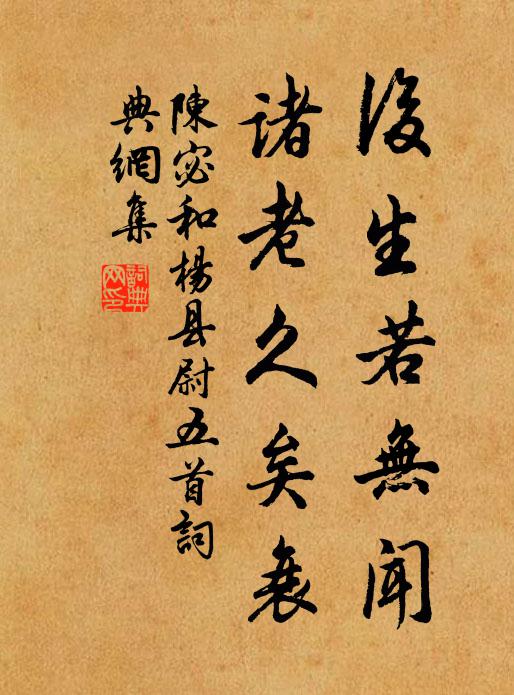 後生若無聞
諸老久矣衰
陳宓和楊县尉五首詞
典網集
詞典网印